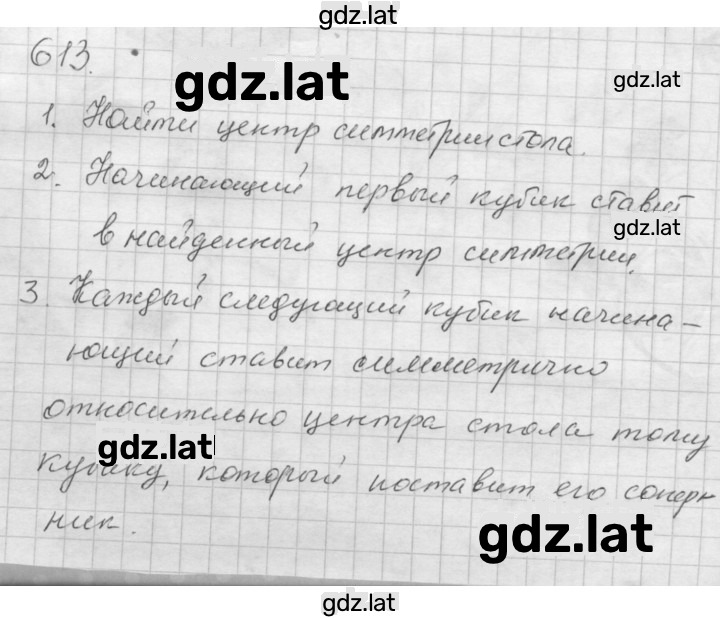 gdz.lat
613.
gdz.lat
gdz.lat
1. Найти центр симметрии стола.
2. Начинающий первый кубик ставит
gdz.lat
в найденный центр симметрии.
3. Каждый следующий кубик начина-
ющий ставит симметрично
относительно центра стола тому
gdz.lat
кубику, который поставит его сопер-
ник.
gdz.lat
gdz.lat